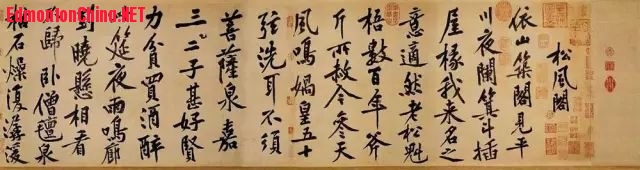 EdmontonChina.NET
松風閣
依山築閣見平
川夜闌箕斗插
屋椽我來名之
意適然老松魁
梧數百年斧
斤所赦今參天
風鳴媧皇五十
弦洗耳不須
菩薩泉嘉
三二子甚好賢
力貧買酒醉
此筵夜雨鳴廊
到曉懸相看
不歸臥僧氈泉
枯石燥復潺湲